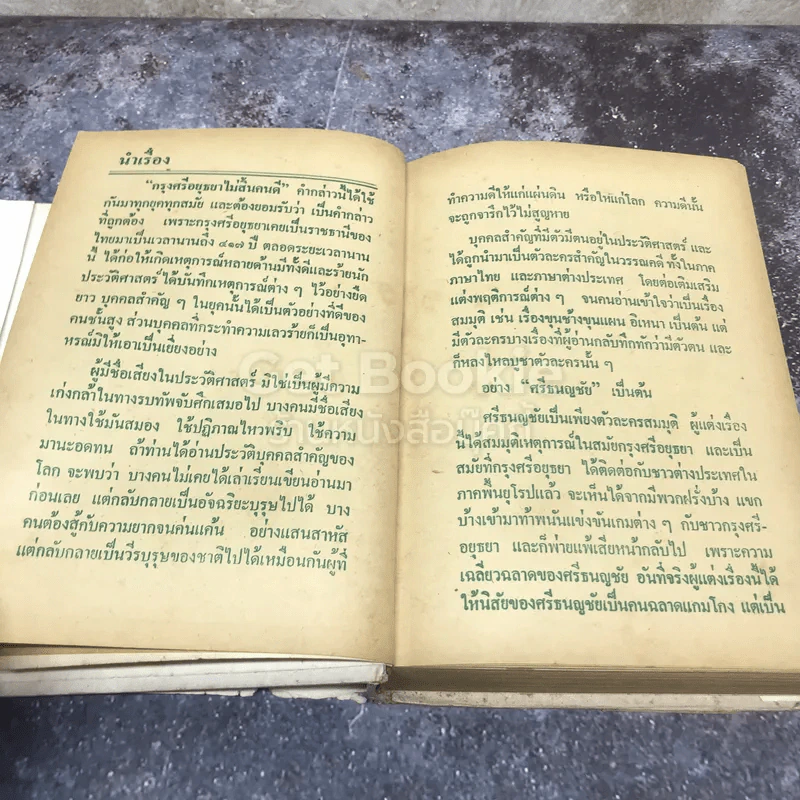 นำเรื่อง
"กรุงศรีอยุธยาไม่สิ้นคนดี" คำกล่าวนี้ได้ใช้
กันมาทุกยุคทุกสมัย และต้องยอมรับว่า เป็นคำกล่าว
ที่ถูกต้อง เพราะกรุงศรีอยุธยาเคยเป็นราชธานีของ
ไทยมาเป็นเวลานานถึง ๔๑๗ ปี ตลอดระยะเวลานาน
นี้ ได้ก่อให้เกิดเหตุการณ์หลายด้านมีทั้งดีและร้ายนัก
ประวัติศาสตร์ ได้บันทึกเหตุการณ์ต่าง ๆ ไว้อย่างยืด
ยาว บุคคลสำคัญ ๆ ในยุคนั้นได้เป็นตัวอย่างที่ดีของ
คนชั้นสูง ส่วนบุคคลที่กระทำความเลวร้ายก็เป็นอุทา-
หรณ์มิให้เอาเป็นเยี่ยงอย่าง
ผู้มีชื่อเสียงในประวัติศาสตร์ มิใช่เป็นผู้มีความ
เก่งกล้าในทางรบทัพจับศึกเสมอไป บางคนมีชื่อเสียง
ในทางใช้มันสมอง ใช้ปฏิภาณไหวพริบ ใช้ความ
มานะอดทน ถ้าท่านได้อ่านประวัติบุคคลสำคัญของ
โลก จะพบว่า บางคนไม่เคยได้เล่าเรียนเขียนอ่านมา
ก่อนเลย แต่กลับกลายเป็นอัจฉริยะบุรุษไปได้ บาง
คนต้องสู้กับความยากจนค่นแค้น อย่างแสนสาหัส
แต่กลับกลายเป็นวีรบุรุษของชาติไปได้เหมือนกันผู้ที่
ทำความดีให้แก่แผ่นดิน หรือให้แก่โลก ความดีนั้น
จะถูกจารึกไว้ไม่สูญหาย
บุคคลสำคัญที่มีตัวมีตนอยู่ในประวัติศาสตร์ และ
ได้ถูกนำมาเป็นตัวละครสำคัญในวรรณคดี ทั้งในภาค
ภาษาไทย และภาษาต่างประเทศ โดยต่อเติมเสริม
แต่งพฤติการณ์ต่าง ๆ จนคนอ่านเข้าใจว่าเป็นเรื่อง
สมมุติ เช่น เรื่องขุนช้างขุนแผน อิเหนา เป็นต้น แต่
มีตัวละครบางเรื่องที่ผู้อ่านกลับทึกทักว่ามีตัวตน และ
ก็หลงไหลบูชาตัวละครนั้น ๆ
อย่าง "ศรีธนญชัย" เป็นต้น
ศรีธนญชัยเป็นเพียงตัวละครสมมุติ ผู้แต่งเรื่อง
นี้ได้สมมุติเหตุการณ์ในสมัยกรุงศรีอยุธยา และเป็น
สมัยที่กรุงศรีอยุธยา ได้ติดต่อกับชาวต่างประเทศใน
ภาคพื้นยุโรปแล้ว จะเห็นได้จากมีพวกฝรั่งบ้าง แขก
บ้างเข้ามาท้าพนันแข่งขันเกมต่าง ๆ กับชาวกรุงศรี-
อยุธยา และก็พ่ายแพ้เสียหน้ากลับไป เพราะความ
เฉลียวฉลาดของศรีธนญชัย อันที่จริงผู้แต่งเรื่องนี้ได้
ให้นิสัยของศรีธนญชัยเป็นคนฉลาดแกมโกง แต่เป็น
Get Bookie
ร้านหนังสือบุ๊คกี้